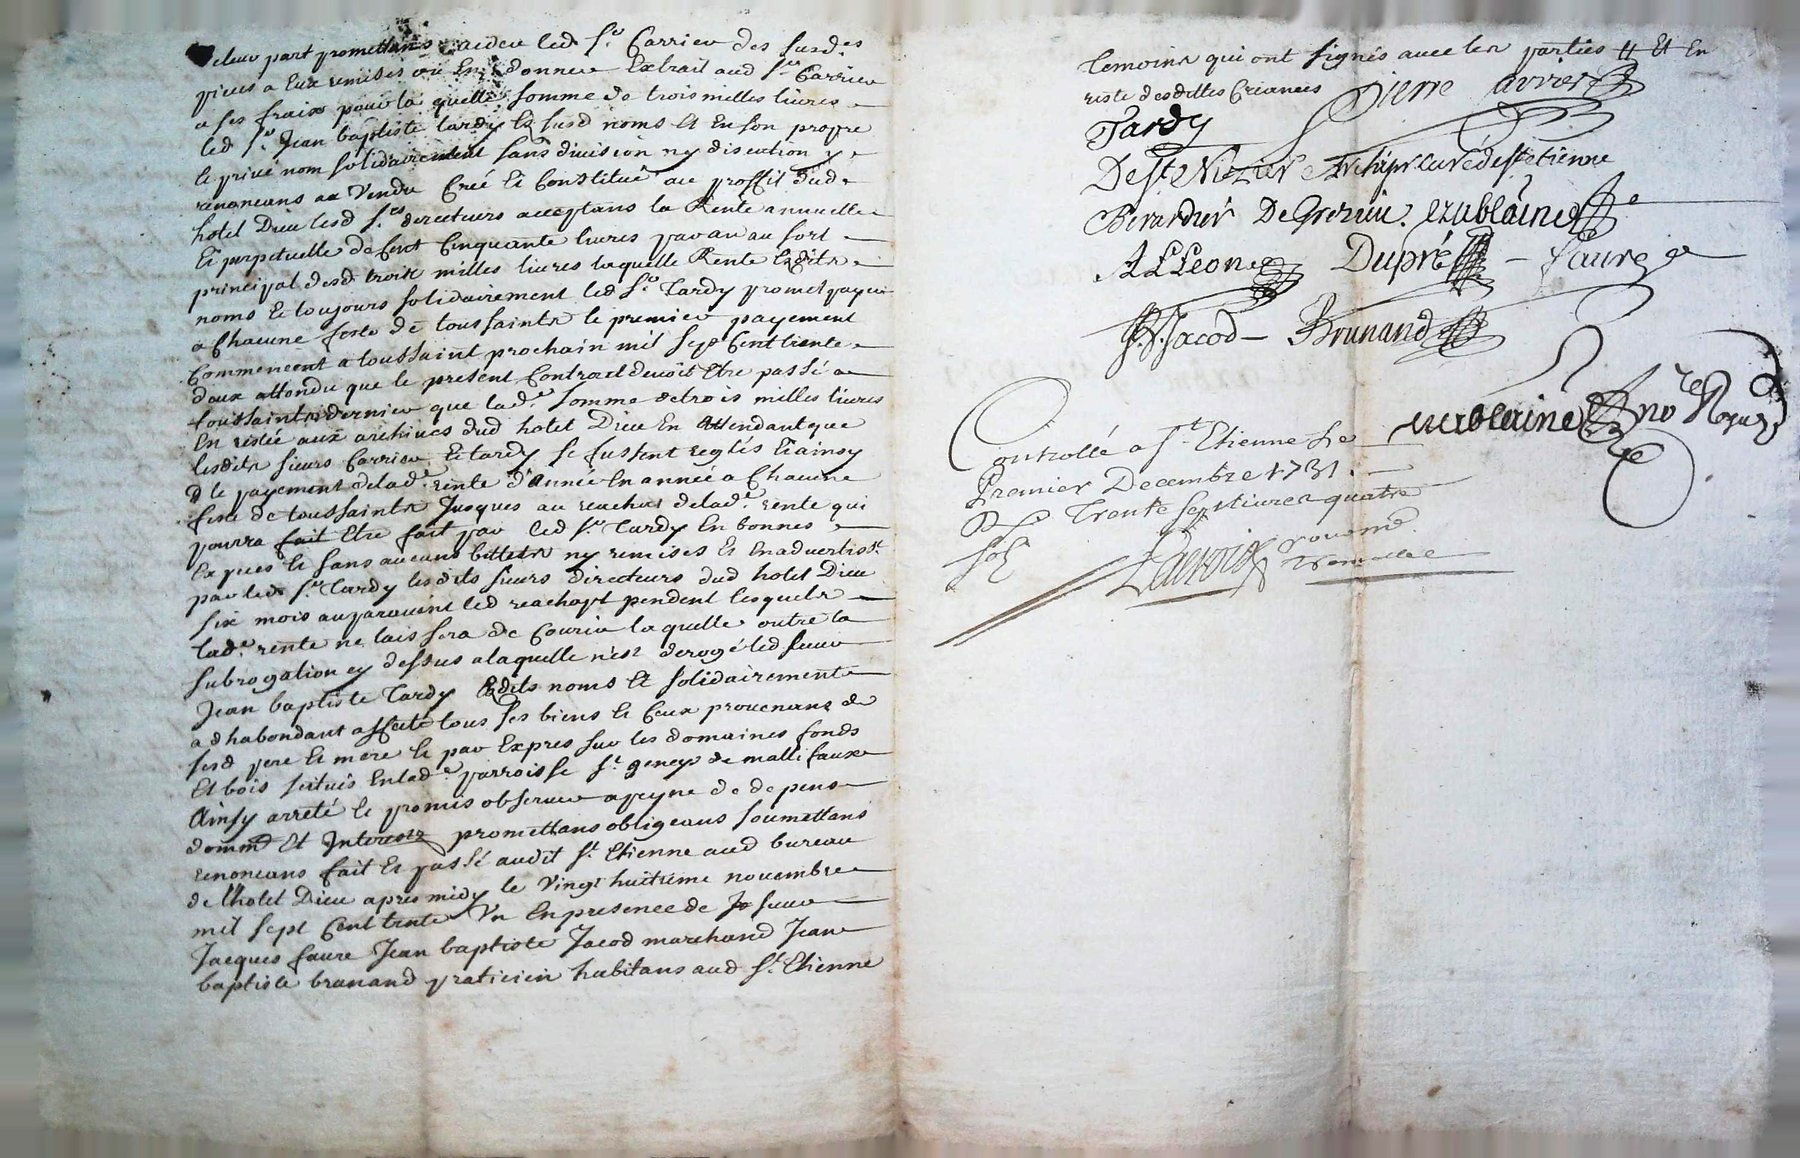 de leur part promettans aider led. Sr. Carrier des susd.es
pieces a Eux remises ou En donner Extrait aud Sr. Carrier
a ses fraix pour la quelle somme de trois milles livres
led Sr. Jean baptiste tardy Es susd noms Et En son propre
Et privé nom solidairement sans division ny discution y
renoncans aa Vendu Creé Et Constitué au proffit dud.
hotel Dieu lesd Srs. directeurs acceptans la Rente annuelle
Et perpetuelle de Cent Cinquante livres payan au fort
principal desd trois milles livres laquelle Rente Esdits
noms Et toujours solidairement led Sr. Tardy promet payer
a Chacune feste de toussaints le premier payement
Commencent a toussaint prochain mil sept Cent trente
deux attendu que le present Contract devoit Etre passé a
toussaints dernier que lad.e somme de trois milles livres
En restée aux archives dud hotel Dieu En attendant que
lesdits sieurs Carrier Et tardy se fussent reglés Et ainsy
le payement de lad.e rente d'Année En année a Chacune
feste de toussaints Jusques au reachat de lad.e rente qui
pourra fait Etre fait par led Sr. Tardy En bonnes
Especes Et sans aucuns billets ny remises Et En advertisst.
par led. Sr. Tardy lesdits sieurs directeurs dud hotel Dieu
six mois auparavant led reachapt pendent lesquels
lad.e rente ne laissera de Courir la quelle outre la
subrogation cy dessus a laquelle n'est derogé led sieur
Jean baptiste Tardy Esdits noms Et solidairement
a d habondant affecte tous ses biens Et Ceux provenans de
sesd pere Et mere Et par Expres sur les domaines fonds
Et bois scitués En lad.e parroisse St. geneys de mallifaux
Ainsy arreté Et promis observer a peyne de depens
domm Et Interests promettans obligeans soumettans
renoncans fait Et passé audit St. Etienne aud bureau
de l'hotel Dieu apres midy le Vingt huitieme novembre
mil sept Cent trente Un En presence de sieur
Jacques faure Jean baptiste Jacod marchand Jean
baptiste brunand praticien habitans aud St. Etienne
temoins qui ont signés avec les parties // Et En
reste desdittes Creances Pierre Carrier
Tardy
De St. Nizier Archiprcuré de St etienne
Berardier De Grezieu. Erablaine
A L Leon Dupré - faure
J. B. Jacod - Brunand
Erablaine no.re Royal
Controllé a St. Etienne Le
Premier Decembre 1731.
R. Trente sept livres quatre
sols Lacroix